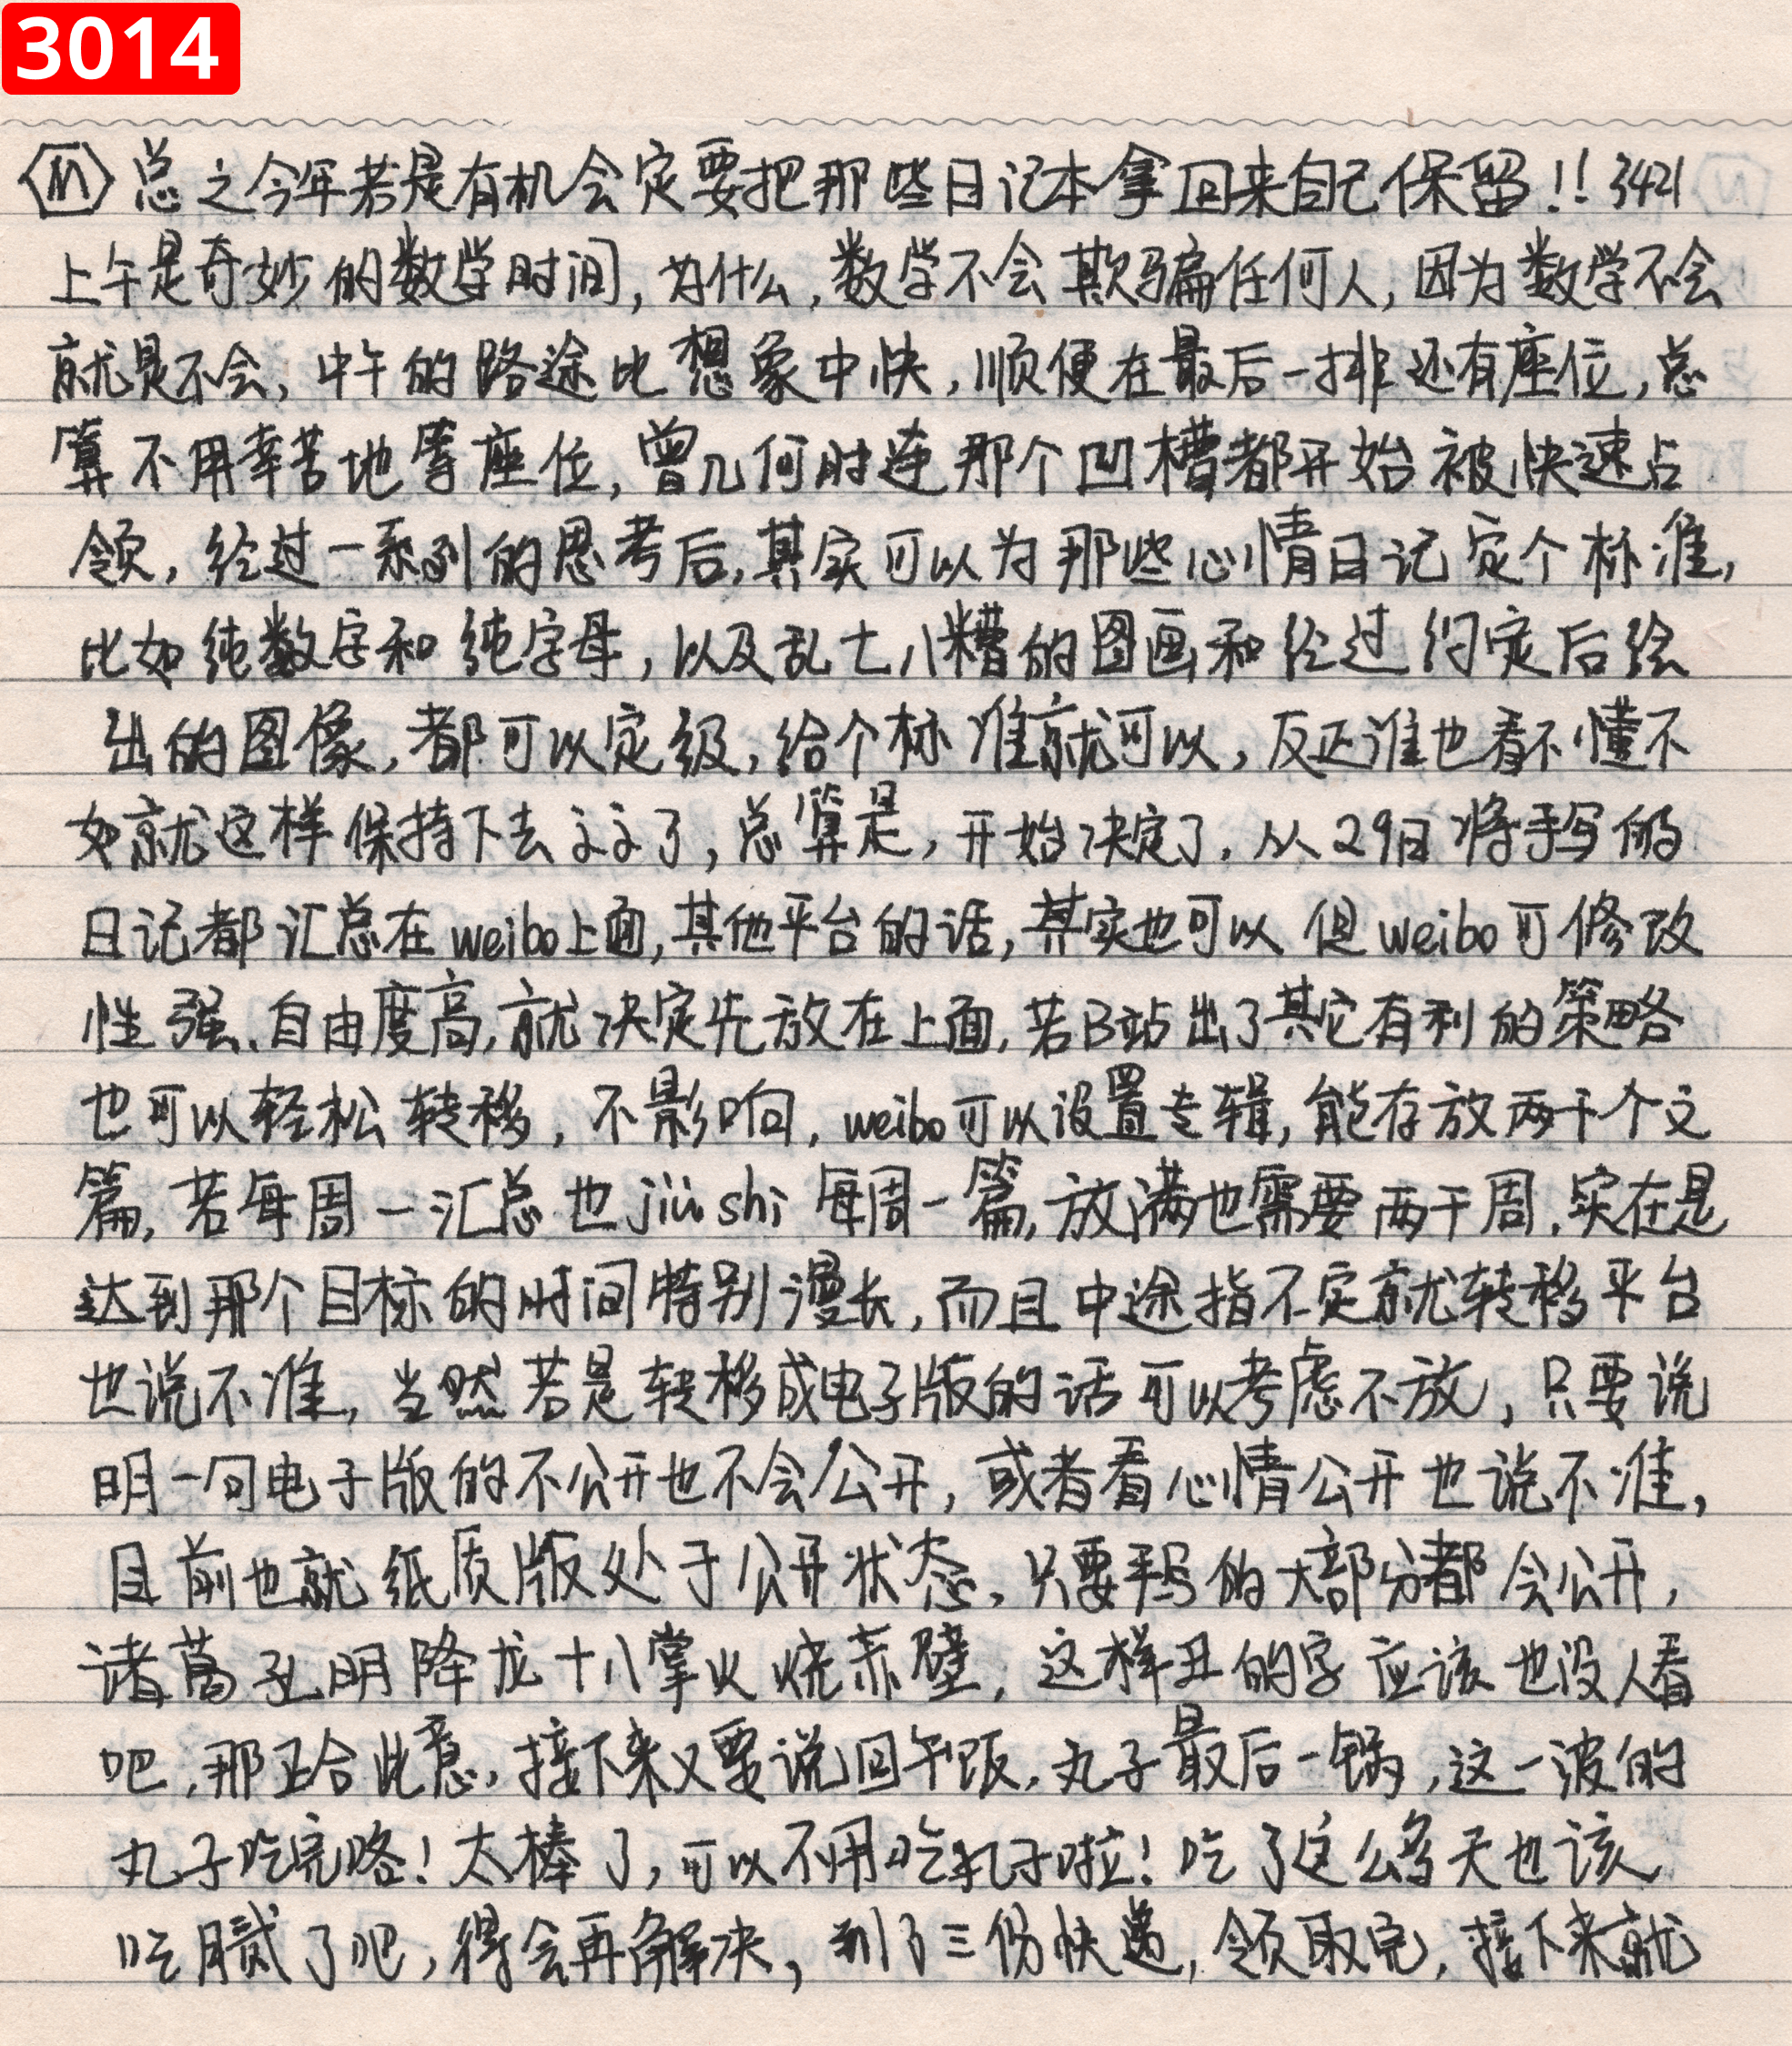 3014
M 总之今年若是有机会定要把那些日记本拿回来自己保留!! 3421
上午是奇妙的数学时间,为什么,数学不会欺骗任何人,因为数学不会
就是不会,中午的路途比想象中快,顺便在最后一排还有座位,总
算不用幸苦地等座位,曾几何时连那个凹槽都开始被快速占
领,经过一系列的思考后,其实可以为那些心情日记定个标准,
比如纯数字和纯字母,以及乱七八糟的图画和经过约定后绘
出的图像,都可以定级,给个标准就可以,反正谁也看不懂不
如就这样保持下去了,总算是,开始决定了,从29日将手写的
日记都汇总在weibo上面,其他平台的话,其实也可以但weibo可修改
性强、自由度高,就决定先放在上面,若B站出了其它有利的策略
也可以轻松转移,不影响,weibo可以设置专辑,能存放两千个文
篇,若每周一汇总也jiu shi每周一篇,放满也需要两千周,实在是
达到那个目标的时间特别漫长,而且中途指不定就转移平台
也说不准,当然若是转移成电子版的话可以考虑不放,只要说
明一句电子版的不公开也不会公开,或者看心情公开也说不准,
目前也就纸质版处于公开状态,只要手写的大部分都会公开,
诸葛孔明降龙十八掌火烧赤壁,这样丑的字应该也没人看
吧,那正合此意,接下来又要说回午饭,丸子最后一锅,这一波的
丸子吃完咯!太棒了,可以不用吃丸子啦!吃了这么多天也该
吃腻了吧,得会再解决,到了三份快递,领取完,接下来就